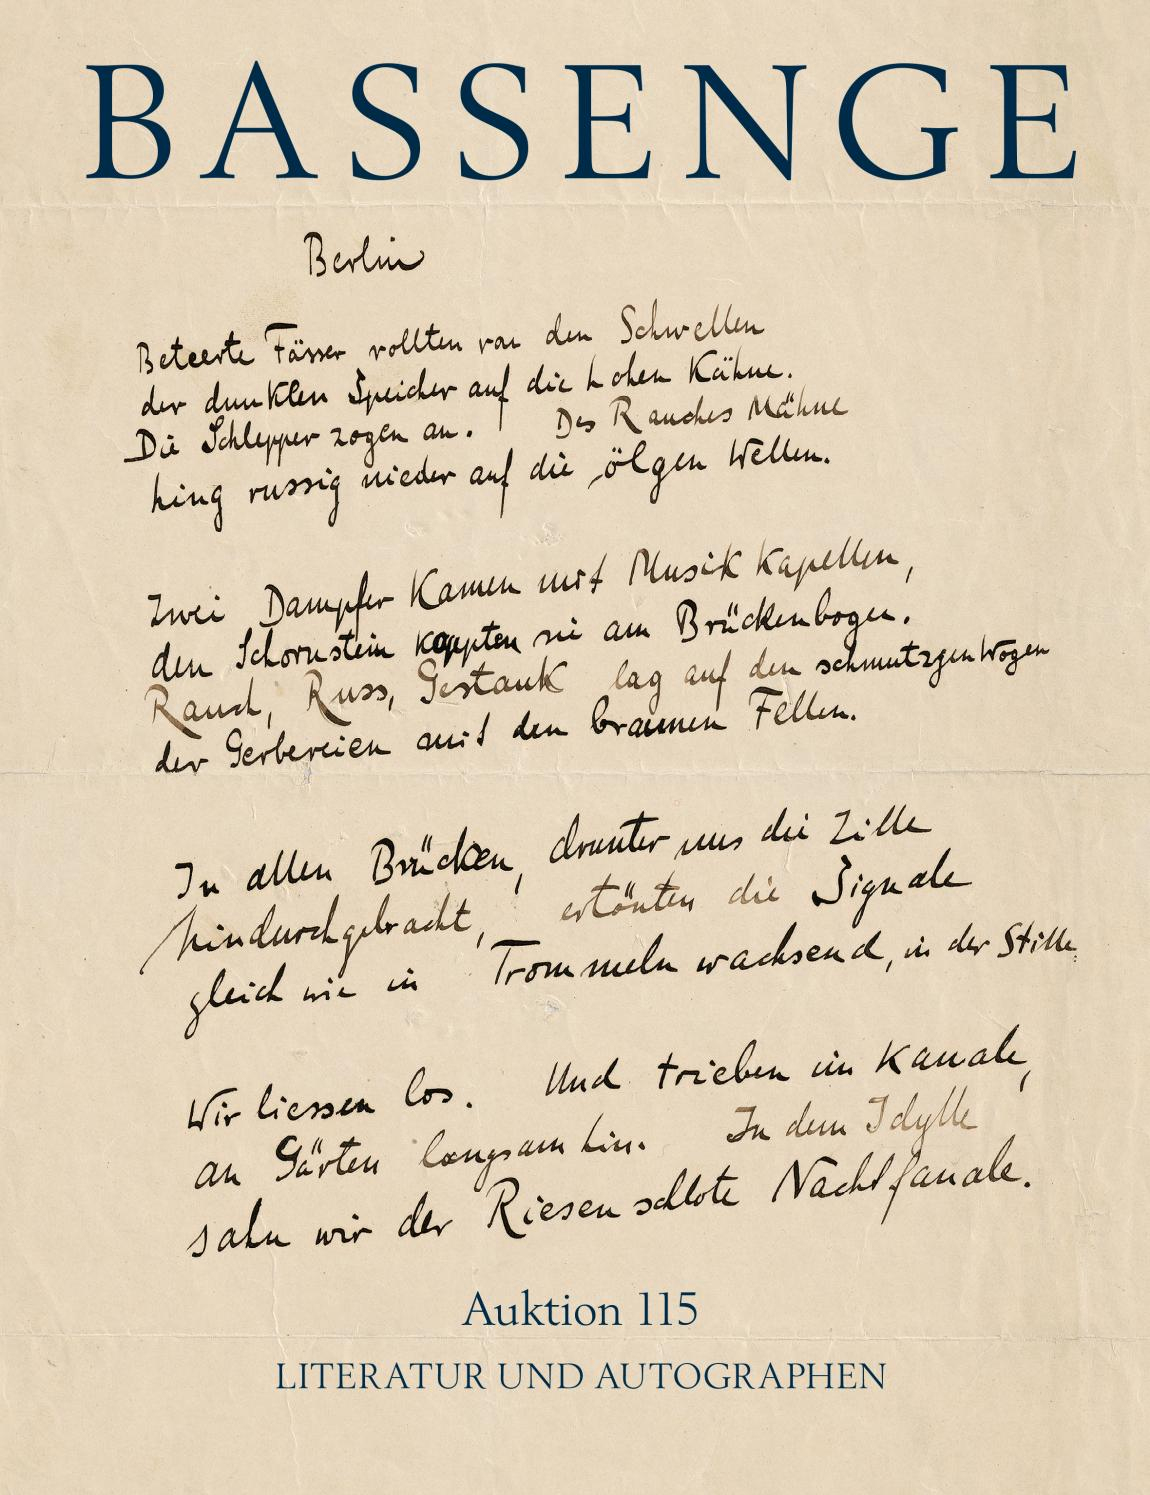 BASSENGE
Berlin
Beteerte Fässer rollten von den Schwellen
der dunklen Speicher auf die hohen Kähne.
Die Schlepper zogen an. Des Rauches Mähne
hing russig nieder auf die ölgen Wellen.
Zwei Dampfer kamen mit Musikkapellen,
den Schornstein kappten sie am Brückenbogen.
Rauch, Russ, Gestank lag auf den schmutzgen Wogen
der Gerbereien mit den braunen Fellen.
In allen Brücken, drunter uns die Zille
hindurchgebracht, ertönten die Signale
gleich wie in Trommeln wachsend, in der Stille.
Wir liessen los. Und trieben im Kanale,
an Gärten langsam hin. In dem Idylle
sahn wir der Riesenschlote Nachtfanale.
Auktion 115
LITERATUR UND AUTOGRAPHEN